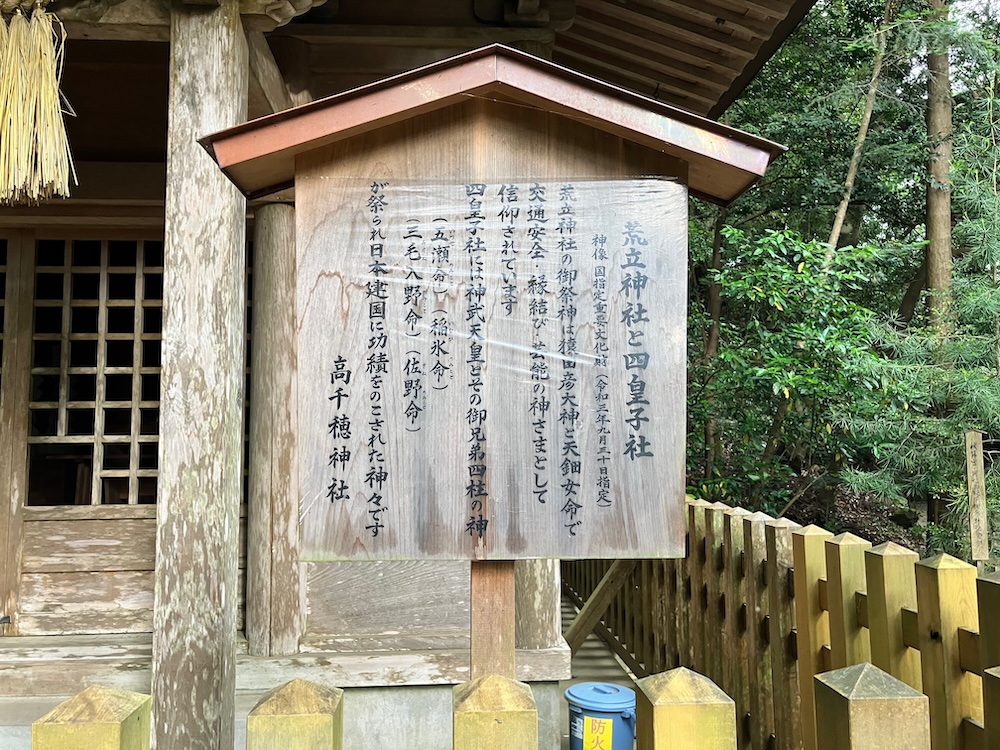 荒立神社と四皇子社
神像 国指定重要文化財(令和三年九月三十日指定)
荒立神社の御祭神は猿田彦大神と天鈿女命で
交通安全・縁結び・芸能の神さまとして
信仰されています
四皇子社には神武天皇とその御兄弟四柱の神
(五瀬命)(稲氷命)
(三毛入野命)(佐野命)
が祭られ日本建国に功績をのこされた神々です
高千穂神社
防火